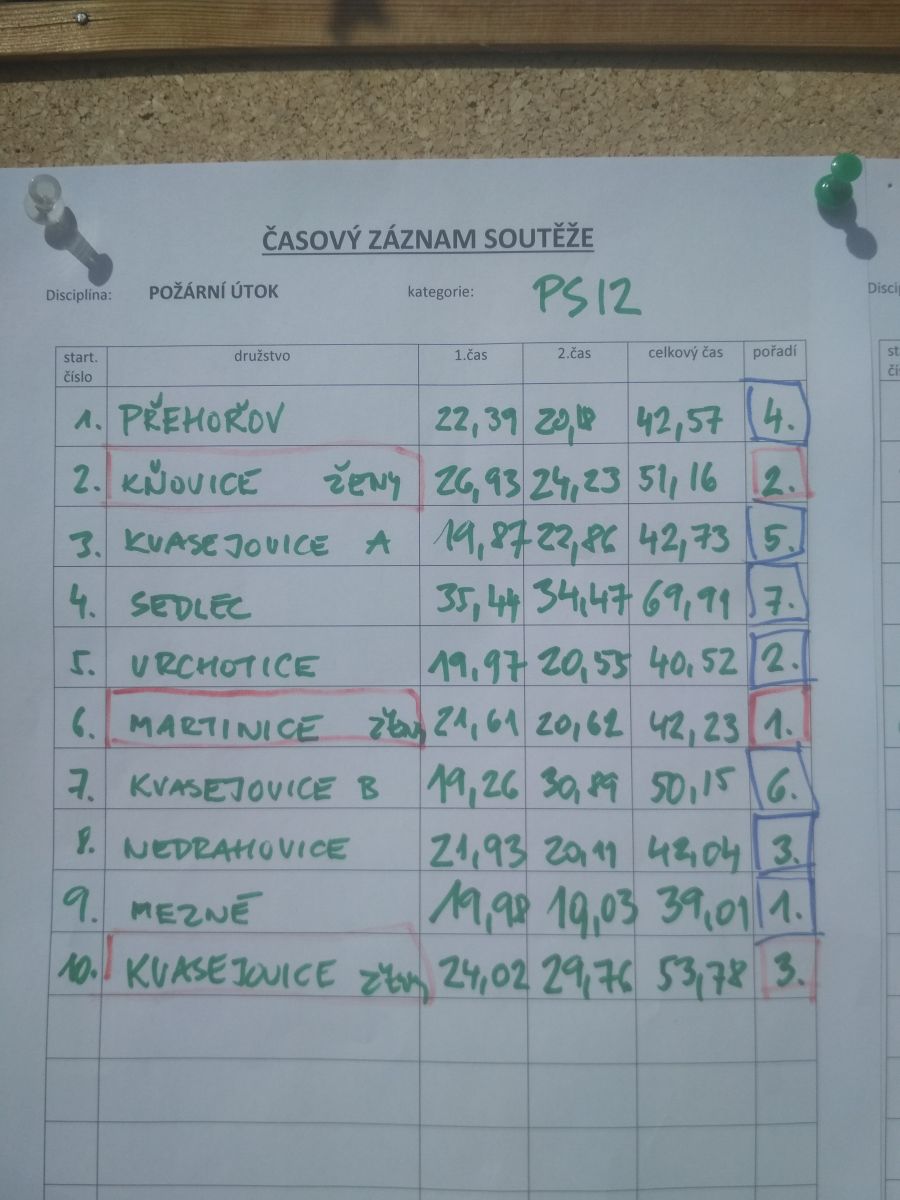 ČASOVÝ ZÁZNAM SOUTĚŽE
Disciplína: POŽÁRNÍ ÚTOK kategorie: PS12
start. číslo družstvo 1.čas 2.čas celkový čas pořadí
1. PŘEHOŘOV 22,39 20,18 42,57 4.
2. KŇOVICE ŽENY 26,93 24,23 51,16 2.
3. KVASEJOVICE A 19,87 22,86 42,73 5.
4. SEDLEC 35,44 34,47 69,91 7.
5. VRCHOTICE 19,97 20,55 40,52 2.
6. MARTINICE ŽENY 21,61 20,62 42,23 1.
7. KVASEJOVICE B 19,26 30,89 50,15 6.
8. NEDRAHOVICE 21,93 20,11 42,04 3.
9. MEZNÉ 19,98 19,03 39,01 1.
10. KVASEJOVICE ŽENY 24,02 29,76 53,78 3.